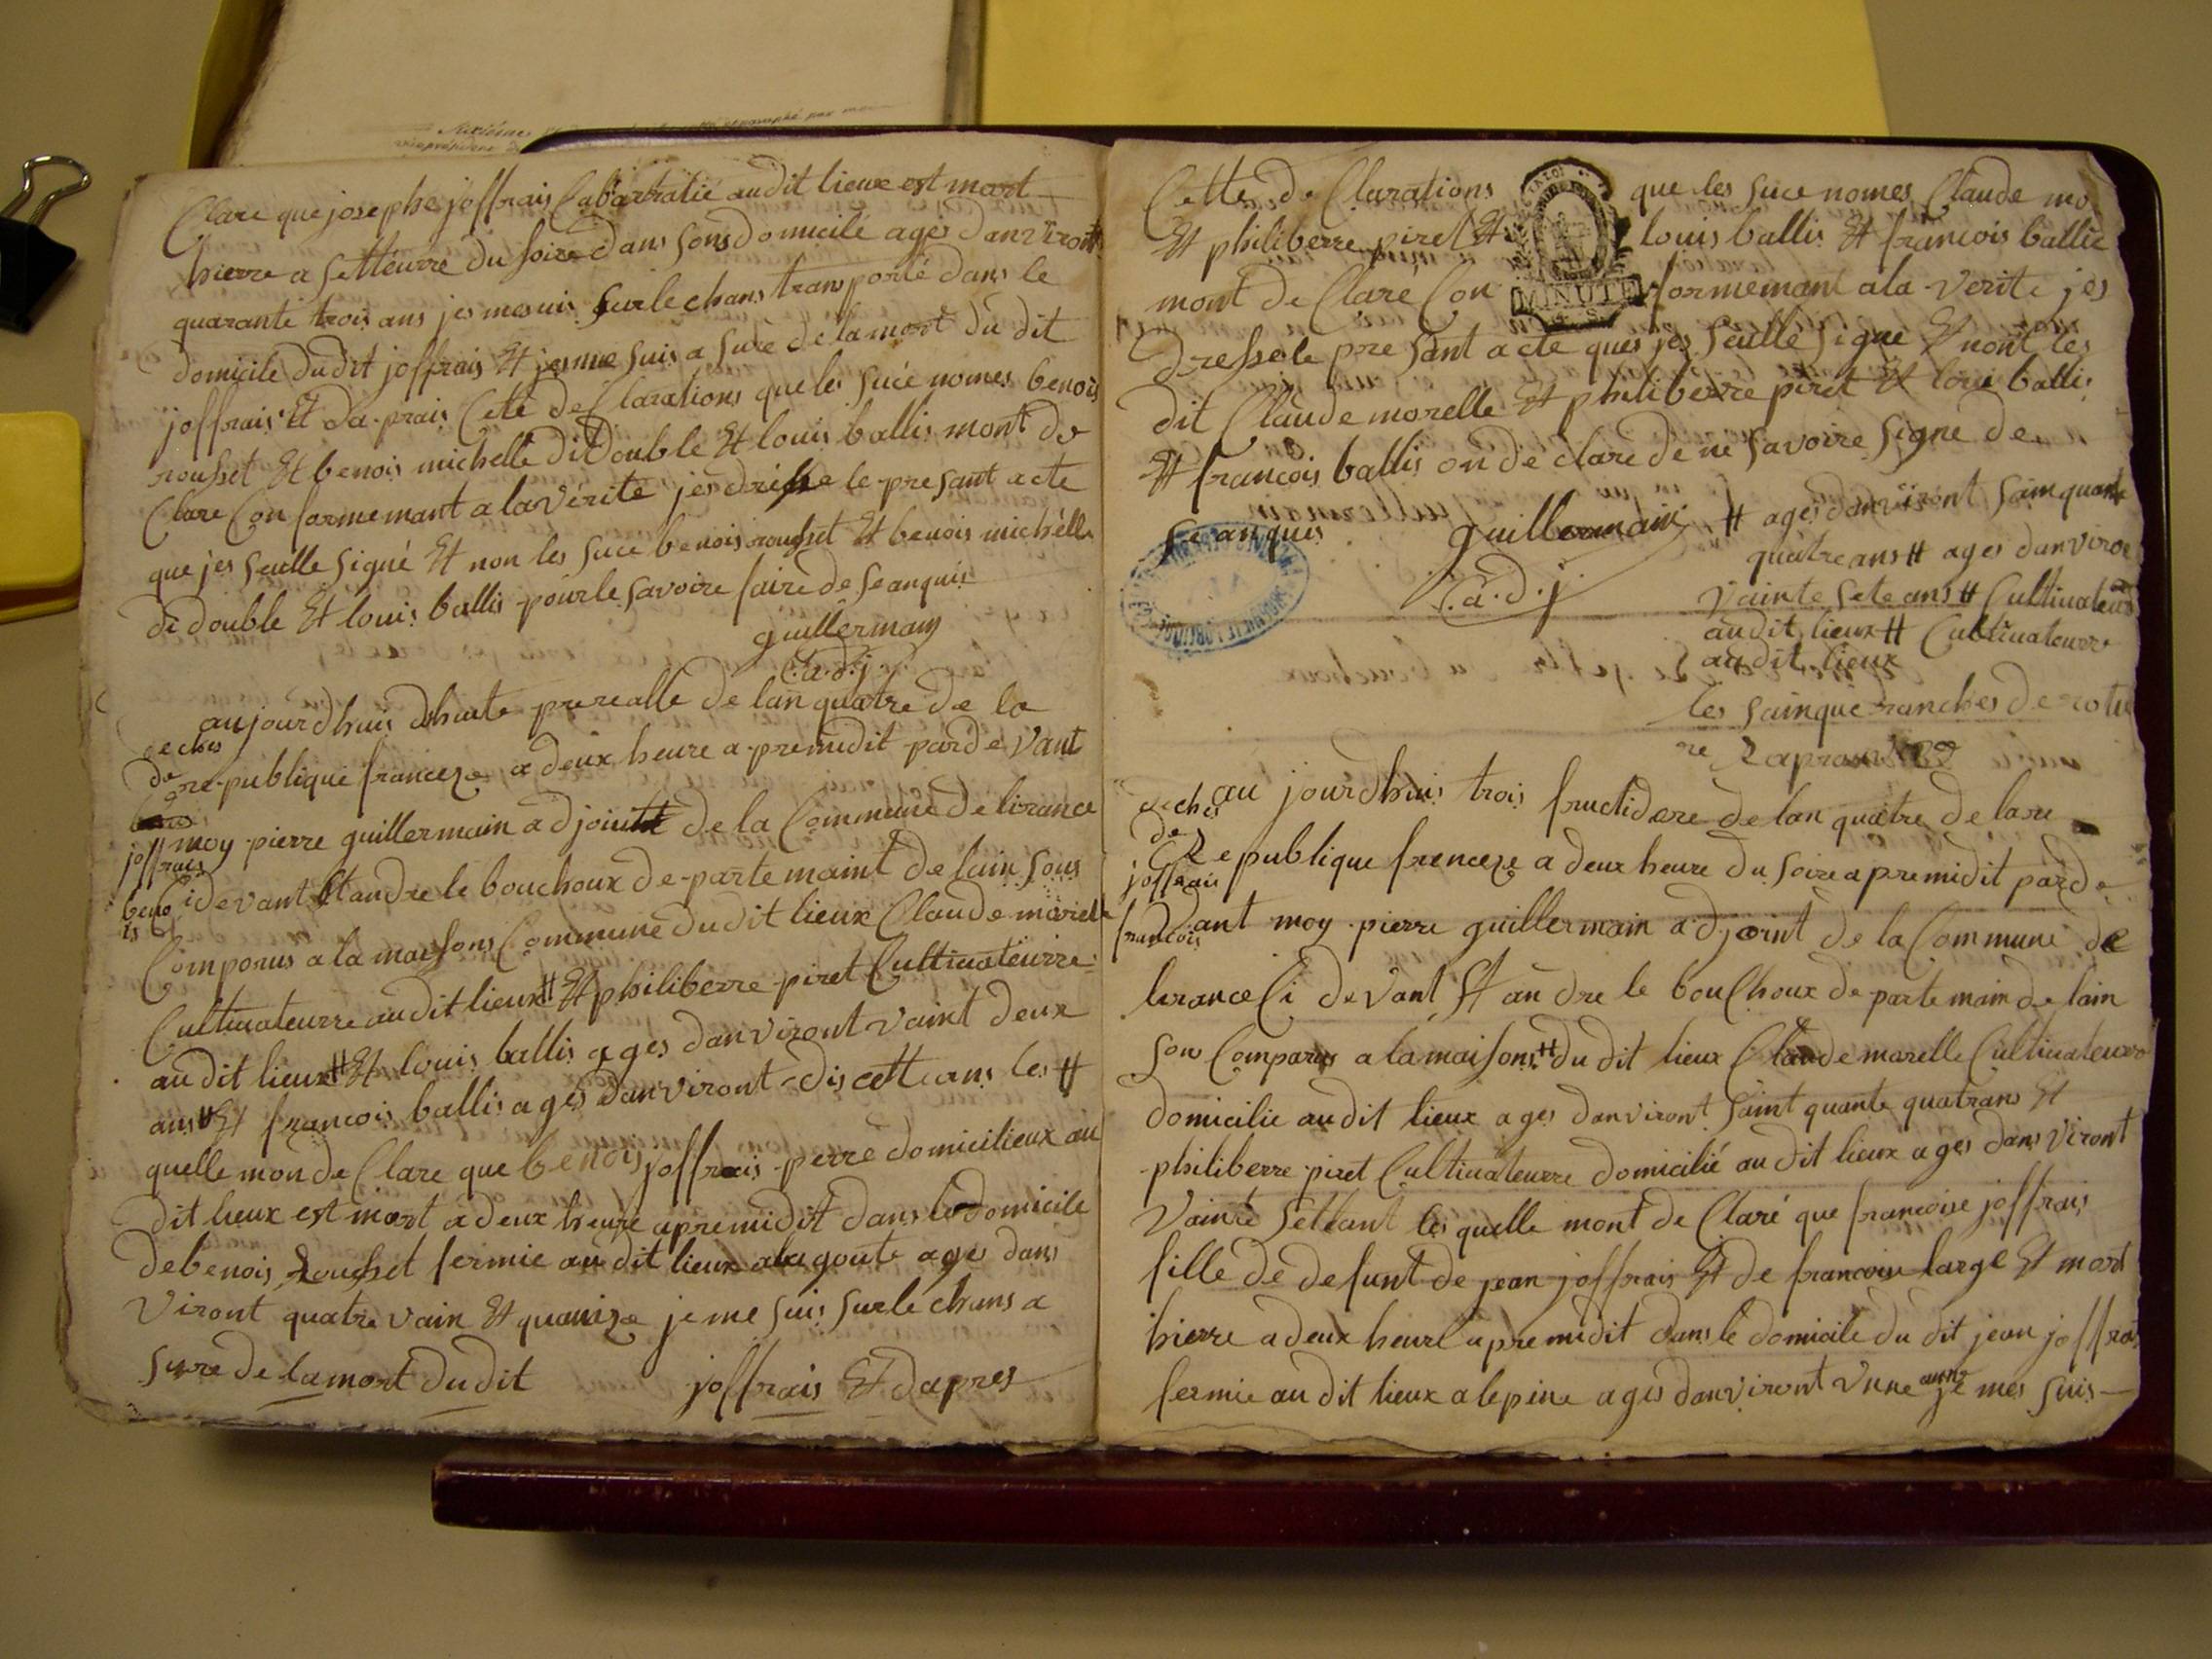 Clare que josephe joffrais Cabartatié audit lieux est mort
hierre a setteurre du soire dans sons domicilé ages danviront
quarante trois ans jes mesuis surlechans transporté dans le
domicile dudit joffrais Et jesme suis a sure de lamort du dit
joffrais Et da-prais Cete de Clarations que les sucé nomes benois
rousset Et benois michelle di double Et louis ballis mont de
Clare Con formemant a la vérite jes drisse le presant acte
que jes seulle signé Et non les suce benois rousset Et benois michélle
di double Et louis ballis pour le savoire faire de seanquis
guillermain
C.a.d.j
aujourdhuis dshuite prerealle de lan quatre de la
deches
de re-publique franceze a deux heure a-premidit pardevant
joffrais
moy pierre guillermain adjointt de la Commune de lirance
beno
is
Cidevant St andre le bouchoux de-partemaint de lain sous
Comporus a la maisons Commune dudit lieux Claude morelle
Cultivateurre audit lieux # Et philiberre piret Cultivateurre
au dit lieux # Et louis ballis ages danviront vaint deux
ans # Et francois ballis ages danviront discett ans les #
quelle mon de Clare que benois joffrais perre domicilieux au
dit lieux est mort a deux heure apremidit dans le domicile
debenois Rousset fermie au dit lieux ala goute ages dans
viront quatre vain Et quainze je me suis surle chans a
surre de lamort dudit joffrais Et dapres
Cette de Clarations que les suce nomes Claude mo
Et philiberre piret Et louis ballis Et francois ballie
MINUTE
mont de Clare Con formemant ala verite jes
dresse le presant acte ques jes seullé signe Et nont les
dit Claude morelle Et philiberre piret Et loui ballis
Et francois ballis on de clare de ne savoire signe de
seanques guillermain
C.a.d.j
# ages danviront sainquante
quatre ans # ages danviron
vainte sete ans # Cultivateurs
audit lieux # Cultivateurre
audit lieux
les sainque ranches de rotu
re Raprouvée
deches au jourdhuis trois fructidore de lan quatre de la re
de
joffrais
Republique frenceze a deux heure du soire apremidit parde
francois
vant moy pierre guillermain adjoint de la Commune de
lirance Ci devant St andre le bouChoux de parte main de lain
son Comparus a la maisons # du dit lieux Claude morelle Cultivateurre
domicilie audit lieux ages danviront saint quante quatrans Et
philiberre piret Cultivateurre domicilié au dit lieux ages dans viront
Vainte settant les quelle mont de Claré que francoise joffrais
fille de defunt de jean joffrais Et de francoise large Et mort
hierre a deux heure apremidit dans le domicile du dit jean joffrais
fermie au dit lieux alepine ages danviront vnne anne je mes suis